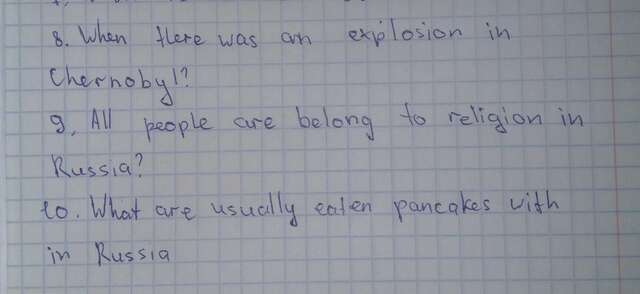 8. When there was an explosion in
Chernobyl?
9. All people are belong to religion in
Russia?
10. What are usually eaten pancakes with
in Russia